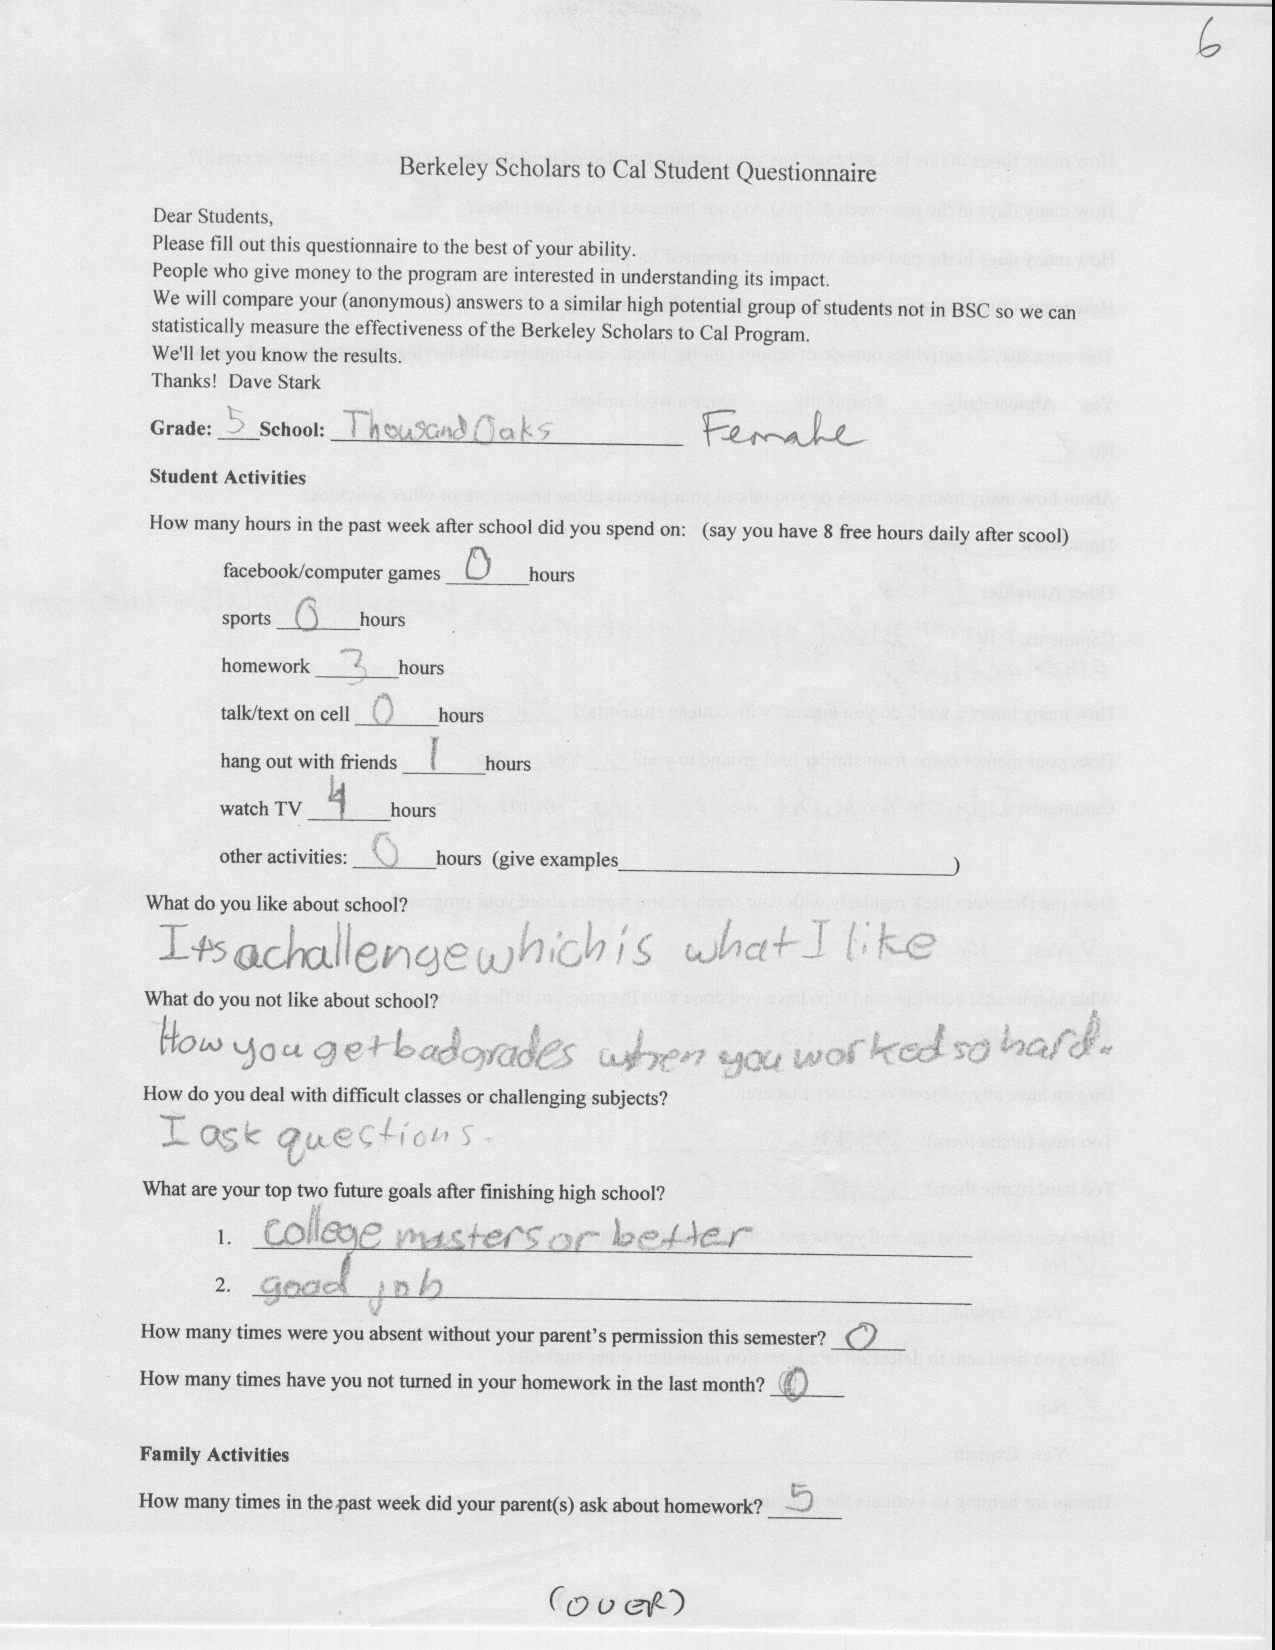 6
Berkeley Scholars to Cal Student Questionnaire
Dear Students,
Please fill out this questionnaire to the best of your ability.
People who give money to the program are interested in understanding its impact.
We will compare your (anonymous) answers to a similar high potential group of students not in BSC so we can
statistically measure the effectiveness of the Berkeley Scholars to Cal Program.
We'll let you know the results.
Thanks! Dave Stark
Grade: 5 School: Thousand Oaks Female
Student Activities
How many hours in the past week after school did you spend on: (say you have 8 free hours daily after scool)
facebook/computer games 0 hours
sports 0 hours
homework 3 hours
talk/text on cell 0 hours
hang out with friends 1 hours
watch TV 4 hours
other activities: 0 hours (give examples )
What do you like about school?
Itsa challenge which is what I like
What do you not like about school?
How you get bad grades when you worked so hard.
How do you deal with difficult classes or challenging subjects?
I ask questions.
What are your top two future goals after finishing high school?
1. college masters or better
2. good job
How many times were you absent without your parent's permission this semester? 0
How many times have you not turned in your homework in the last month? 0
Family Activities
How many times in the past week did your parent(s) ask about homework? 5
(OVER)